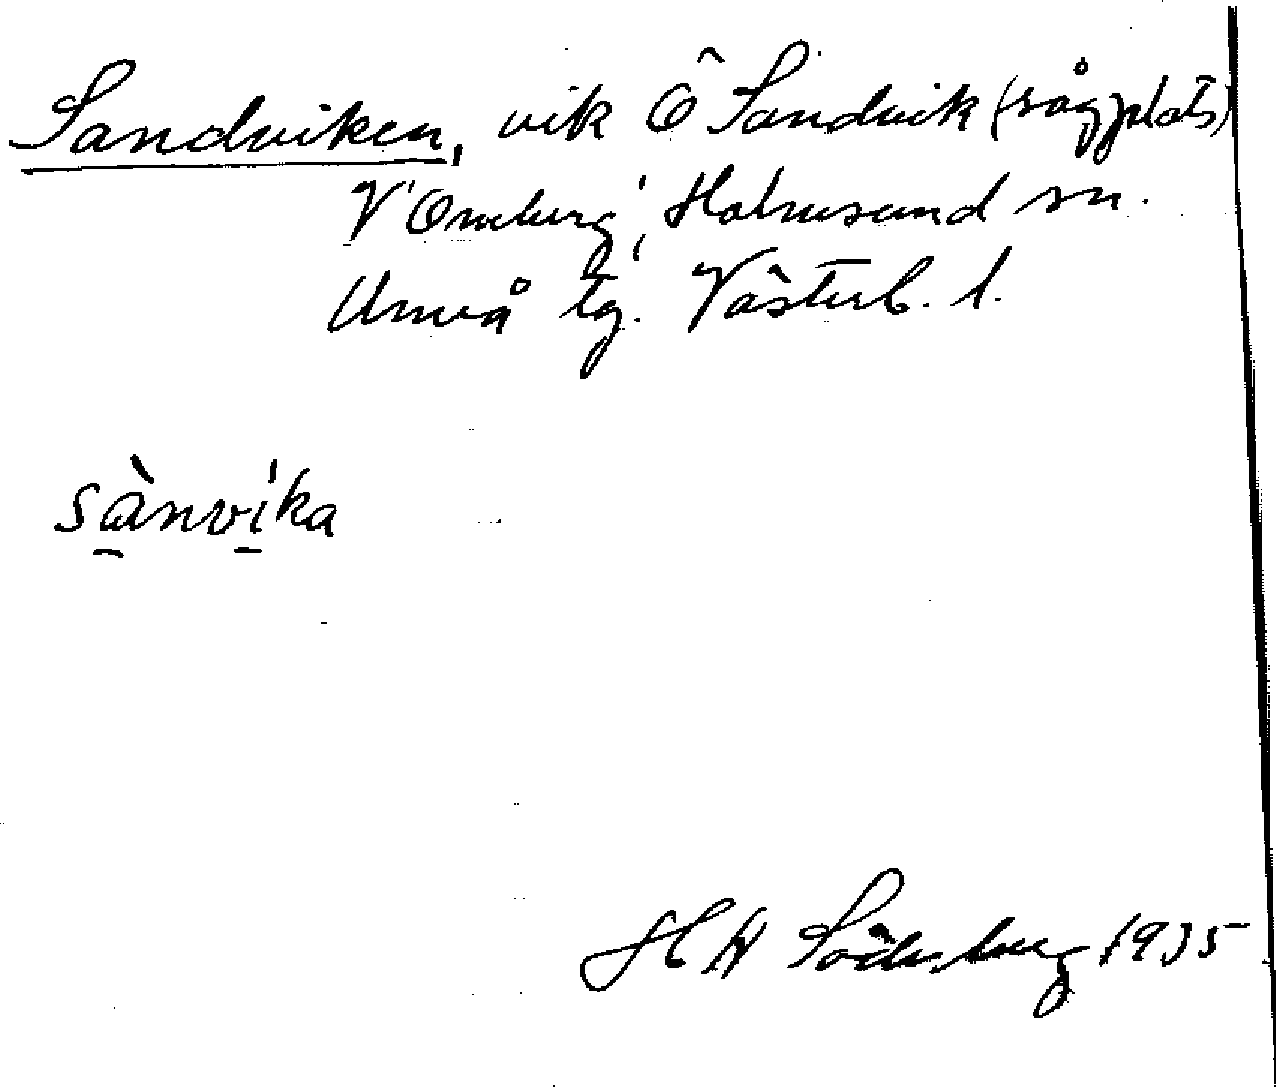 Sandviken, vik Ö Sandvik (sågplats)
V Omeberg, Holmsund sn.
Umeå tg. Västerb. l.
sànvíka
H W Söderberg 1935